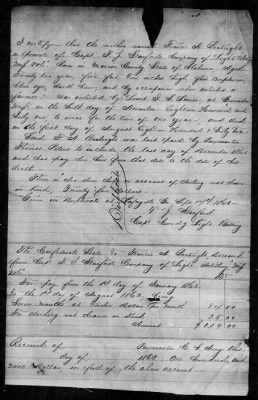 I certify that the within named Francis A.
a private of Capt. T. J. Stanford's Company of Light Arty
Miss. Vols. born in County State of Alabama aged
twenty two years five feet ten inches high, fair complexion
blue eyes, dark hair, and by occupation when enlisted a
farmer, was enlisted by Lieut. at Grenada
Miss. on the Sixth day of November Eighteen Hundred and
sixty one to serve for the term of one year, and died
on the first day of August Eighteen Hundred & Sixty two.
Said F. A. was last paid by Paymaster
Thomas Peters to include the last day of December 1861
and has pay due him from that date to the date of his
death.
There is also due him on account of clothing not drawn
in kind, Twenty five Dollars.
Given in Duplicate at this Sept 17th 1862
T. J. Stanford
Capt Comdg Light Battery
Duplicate
The Confederate States To Francis A. Deceased
from Capt. T. J. Stanford's Company of Light Artillery Miss
Vols. Dr.
For pay from the 1st day of January 1862
to the 1st day of August 1862, being
Seven months at Twelve Dollars per month 84.00
For clothing not drawn in kind 25.00
Amount $109.00
Received of Paymaster C. S. Army this
day of 1862 One Hundred and
nine Dollars in full of the above account